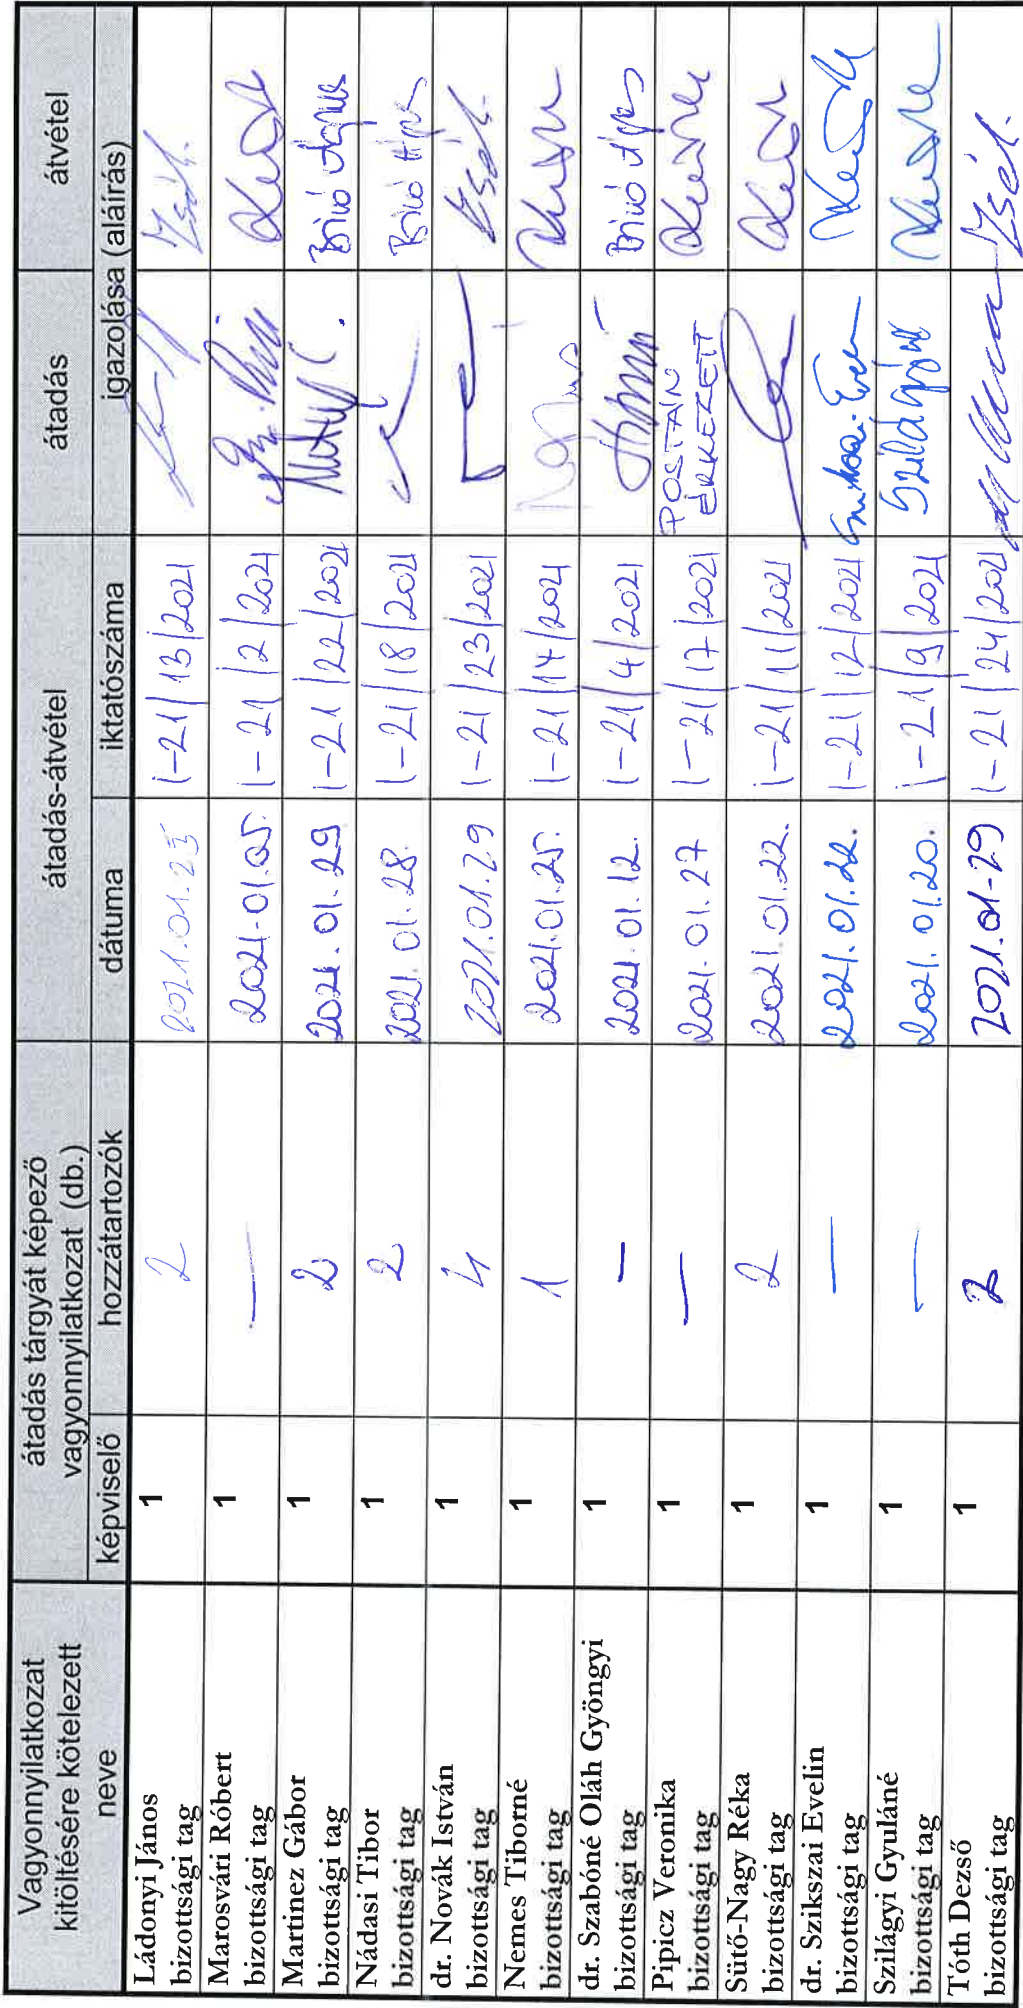 Vagyonnyilatkozat
kitöltésére kötelezett
neve
átadás tárgyát képező
vagyonnyilatkozat (db.)
képviselő
hozzátartozók
átadás-átvétel
dátuma
iktatószáma
átadás
átvétel
igazolása (aláírás)
Ládonyi János
bizottsági tag
1
2
2021.01.25
I-21/13/2021
Marosvári Róbert
bizottsági tag
1
—
2021.01.05.
I-21/2/2021
Martinez Gábor
bizottsági tag
1
2
2021.01.29
I-21/22/2021
Biró Ágnes
Nádasi Tibor
bizottsági tag
1
2
2021.01.28.
I-21/18/2021
Biró Ágnes
dr. Novák István
bizottsági tag
1
4
2021.01.29
I-21/23/2021
Nemes Tiborné
bizottsági tag
1
1
2021.01.25.
I-21/14/2021
dr. Szabóné Oláh Gyöngyi
bizottsági tag
1
—
2021.01.12.
I-21/4/2021
Biró Ágnes
Pipicz Veronika
bizottsági tag
1
—
2021.01.27
I-21/17/2021
POSTÁN
ÉRKEZETT
Sütő-Nagy Réka
bizottsági tag
1
2
2021.01.22.
I-21/11/2021
dr. Szikszai Evelin
bizottsági tag
1
—
2021.01.22.
I-21/12/2021
Szilágyi Gyuláné
bizottsági tag
1
—
2021.01.20.
I-21/9/2021
Tóth Dezső
bizottsági tag
1
2
2021.01-29
I-21/24/2021